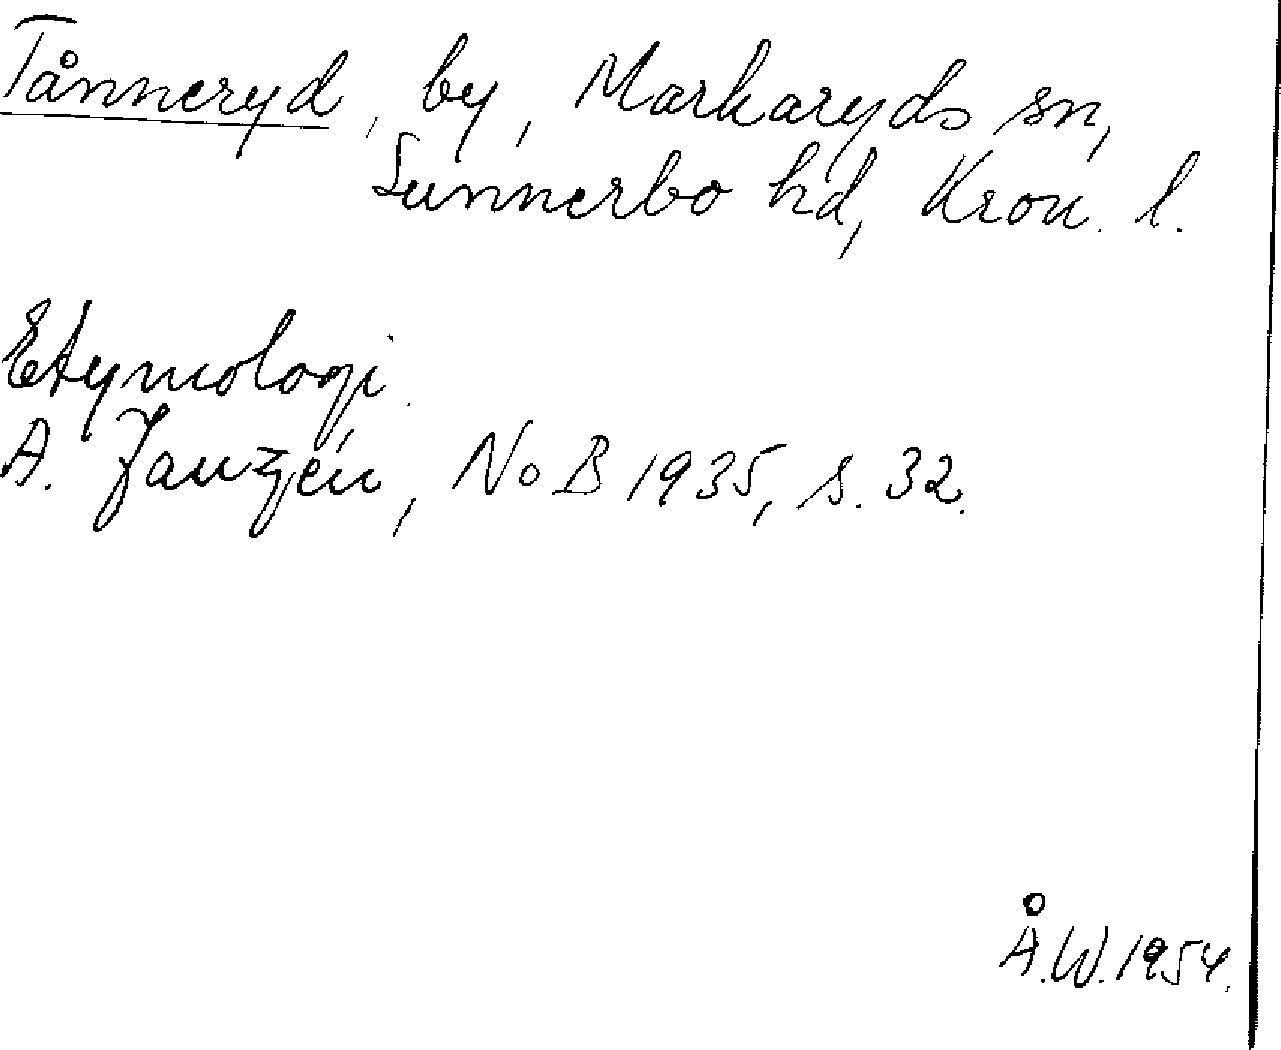 Tånneryd, by, Markaryds sn,
Sunnerbo hd, Kron. l.
Etymologi.
A. Janzén, NoB 1935, s. 32.
Å.W. 1954.